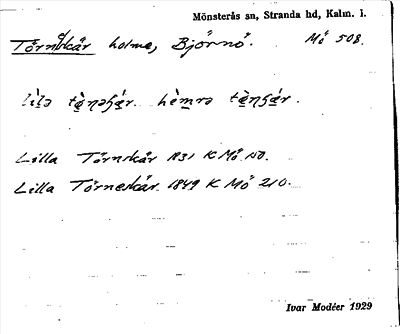 Mönsterås sn, Stranda hd, Kalm. l.
Törneskär holme, Björnö. Mö 508.
Lilla Törnskär 1831 K Mö 150.
Lilla Törneskär 1849 K Mö 210.
Ivar Modéer 1929